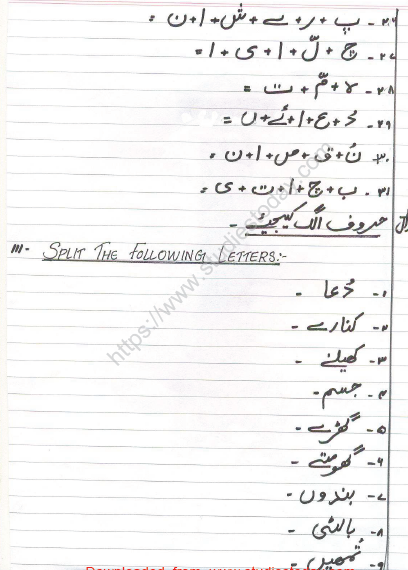 ۲۶۔ پ + ر + ے + ش + ا + ن =
۲۷۔ چ + لّ + ا + ی + ا =
۲۸۔ ہ + مّ + ت =
۲۹۔ دُ + ع + ا + ئے + ں =
۳۰۔ نُ + ق + ص + ا + ن =
۳۱۔ ب + چ + ا + ت + ی =
حروف الگ کیجیئے ۔
III- SPLIT THE FOLLOWING LETTERS:-
۱۔ دُعا ۔
۲۔ کنارے ۔
۳۔ کھیلنے ۔
۴۔ جسم ۔
۵۔ گھڑے ۔
۶۔ گھومتے ۔
۷۔ بندوں ۔
۸۔ بالٹی ۔
۹۔ تمھیں ۔
https://www.studiestoday.com
Downloaded from www.studiestoday.com